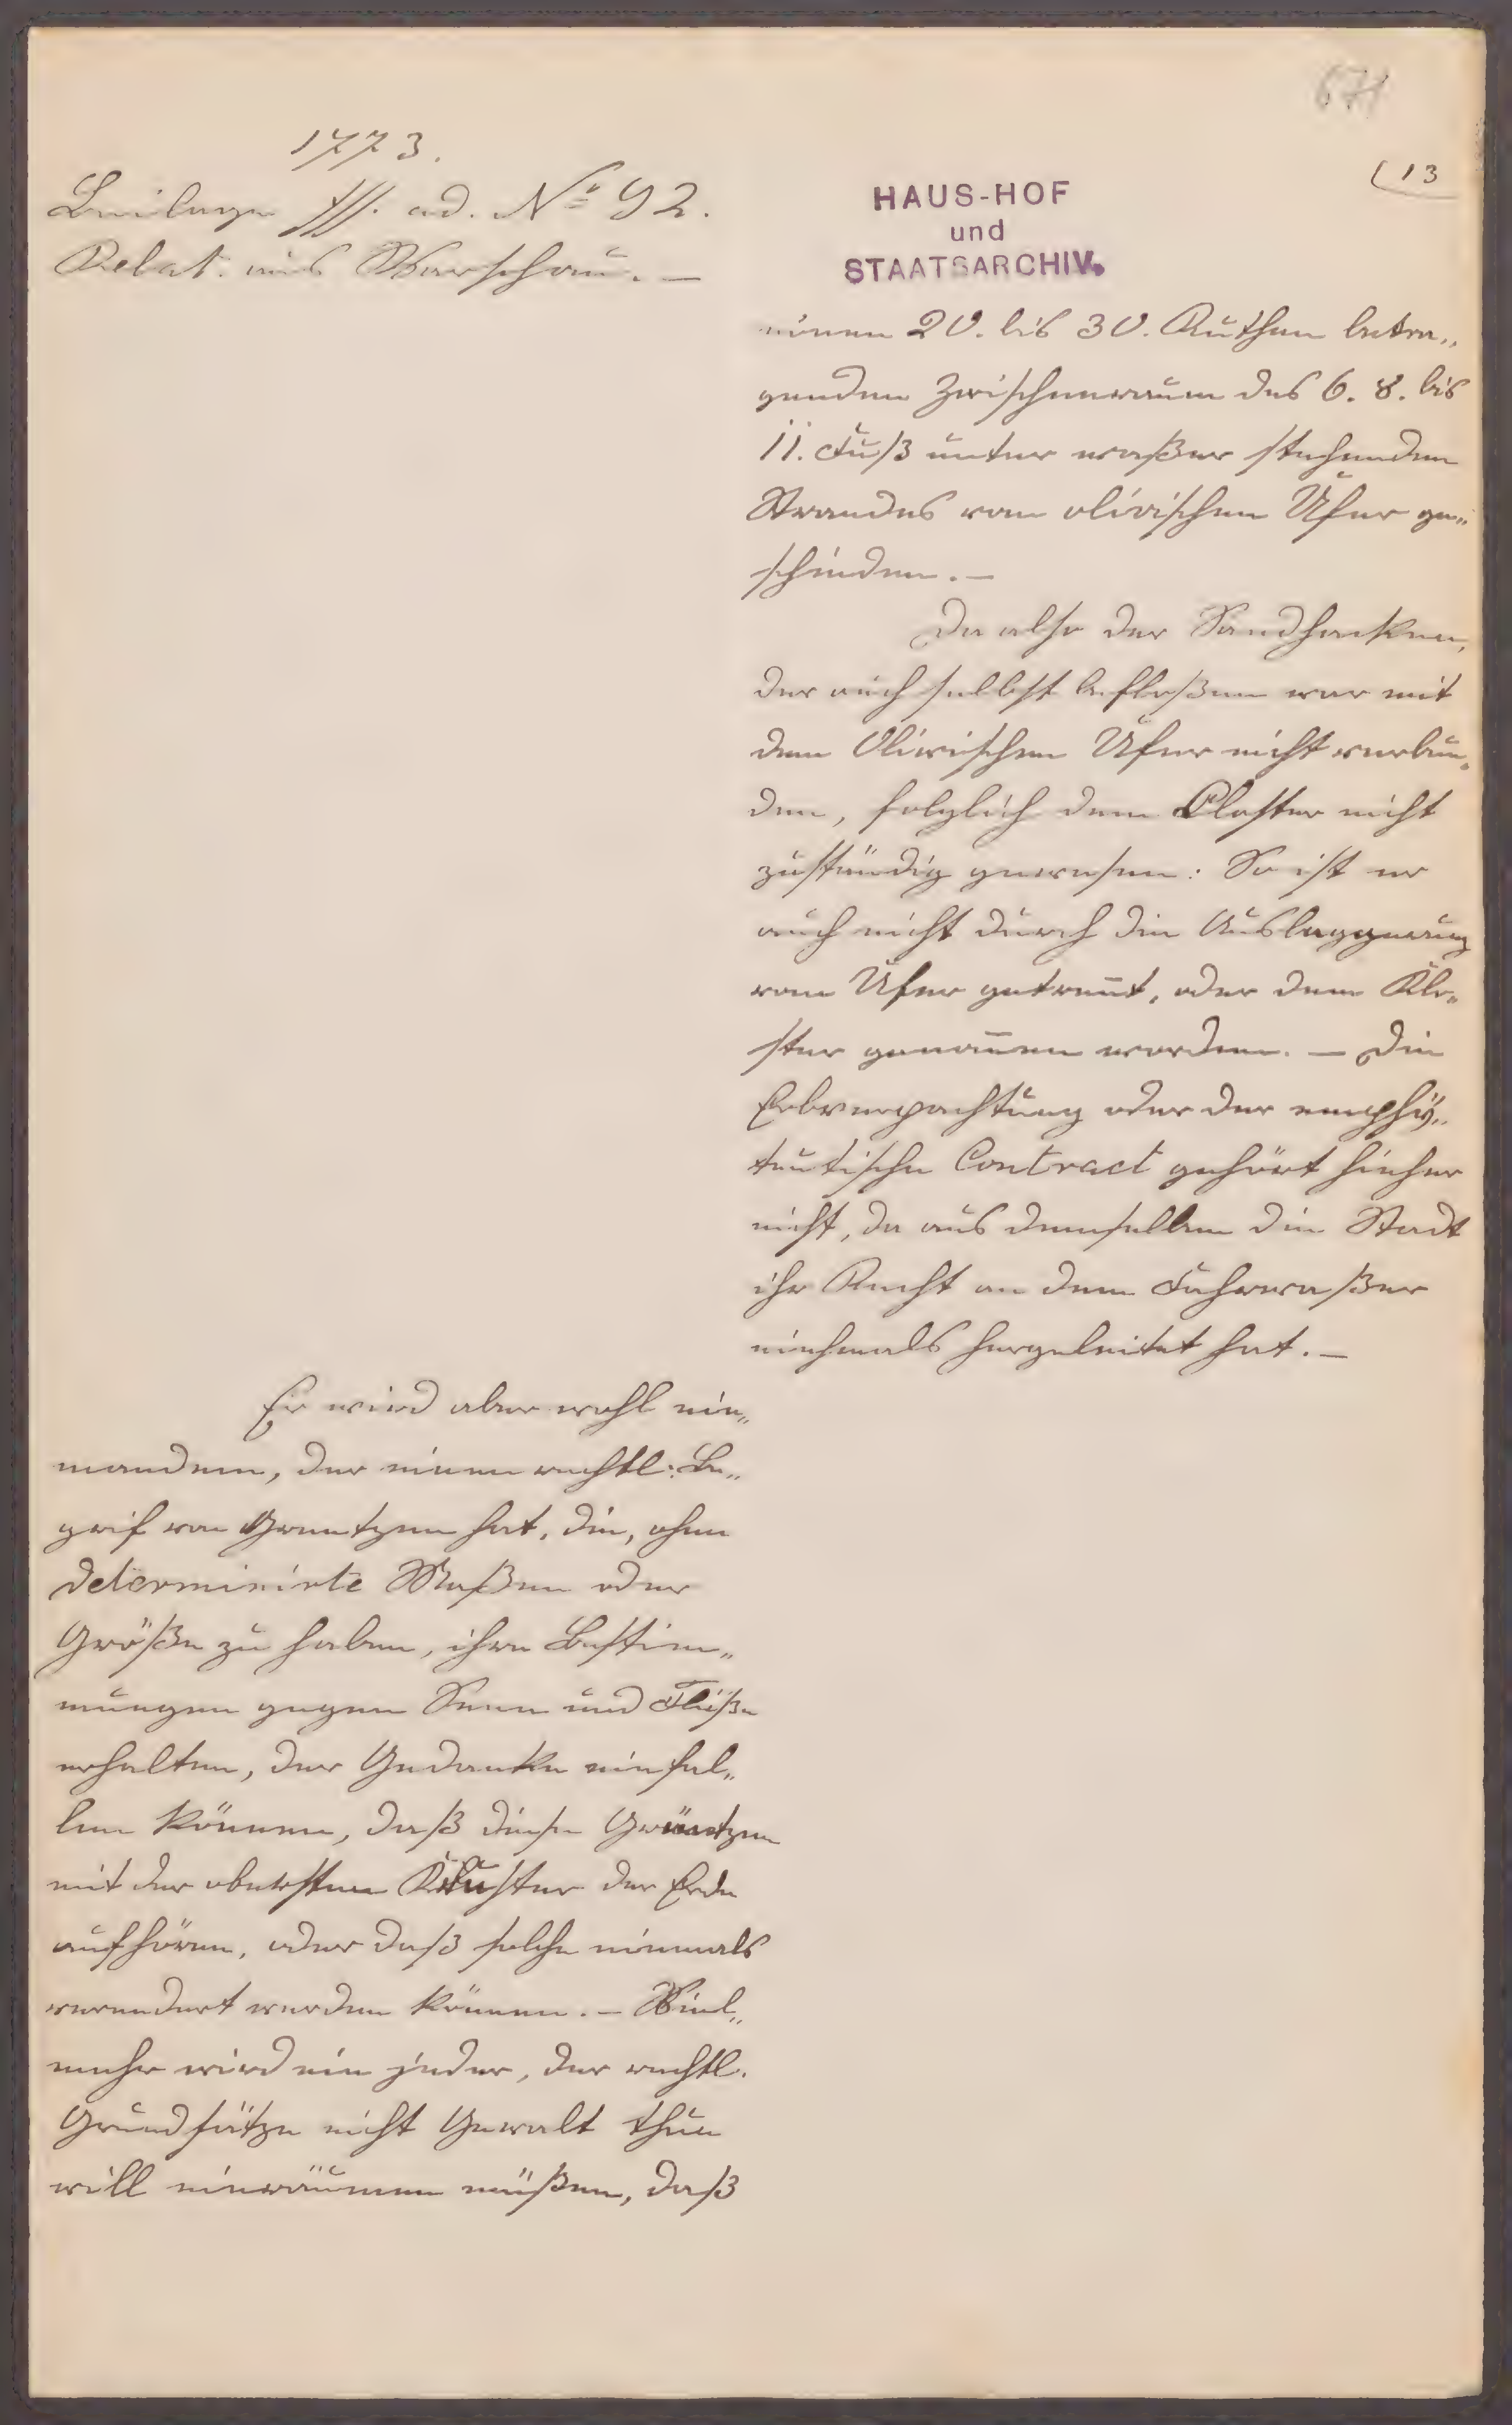 671
1773.
(13
Beilage fff. ad. No 92.
Relat. aus Warschau. —
HAUS-HOF
und
STAATSARCHIV.
einen 20. bis 30. Ruthen betra„
genden Zwischenraum des 6. 8. bis
11. Fuß unter waßer stehenden
Strandes vom olivischen Ufer ge„
schieden. —
Da also der Sandhacken,
der auch selbst befloßen war mit
dem Olivischen Ufer nicht verbun„
den, folglich dem Closter nicht
zuständig gewesen: So ist er
auch nicht durch die Auslaggerung
vom Ufer getreñt, oder dem Klo„
ster genom̄en worden. — Die
Erbverpachtung oder der emphÿ„
teutische Contract gehört hieher
nicht, da aus demselben die Stadt
ihr Recht an dem Fahrwaßer
niehmals hergeleitet hat. —
Er wird aber wohl nie„
mandem, der einen rechtl: Be„
grif von Grentzen hat, die, ohne
determinirte Maßen oder
Größe zu haben, ihre Bestim„
mungen gegen Seen und Flüße
erhalten, der Gedanke einfal„
len können, daß diese Gräntzen
mit der obersten Kruster der Erde
aufhören, oder daß solche niemals
verendert werden können. — Viel„
mehr wird ein jeder, der rechtl.
Grundsätze nicht Gewalt thun
will einräumen müßen, daß